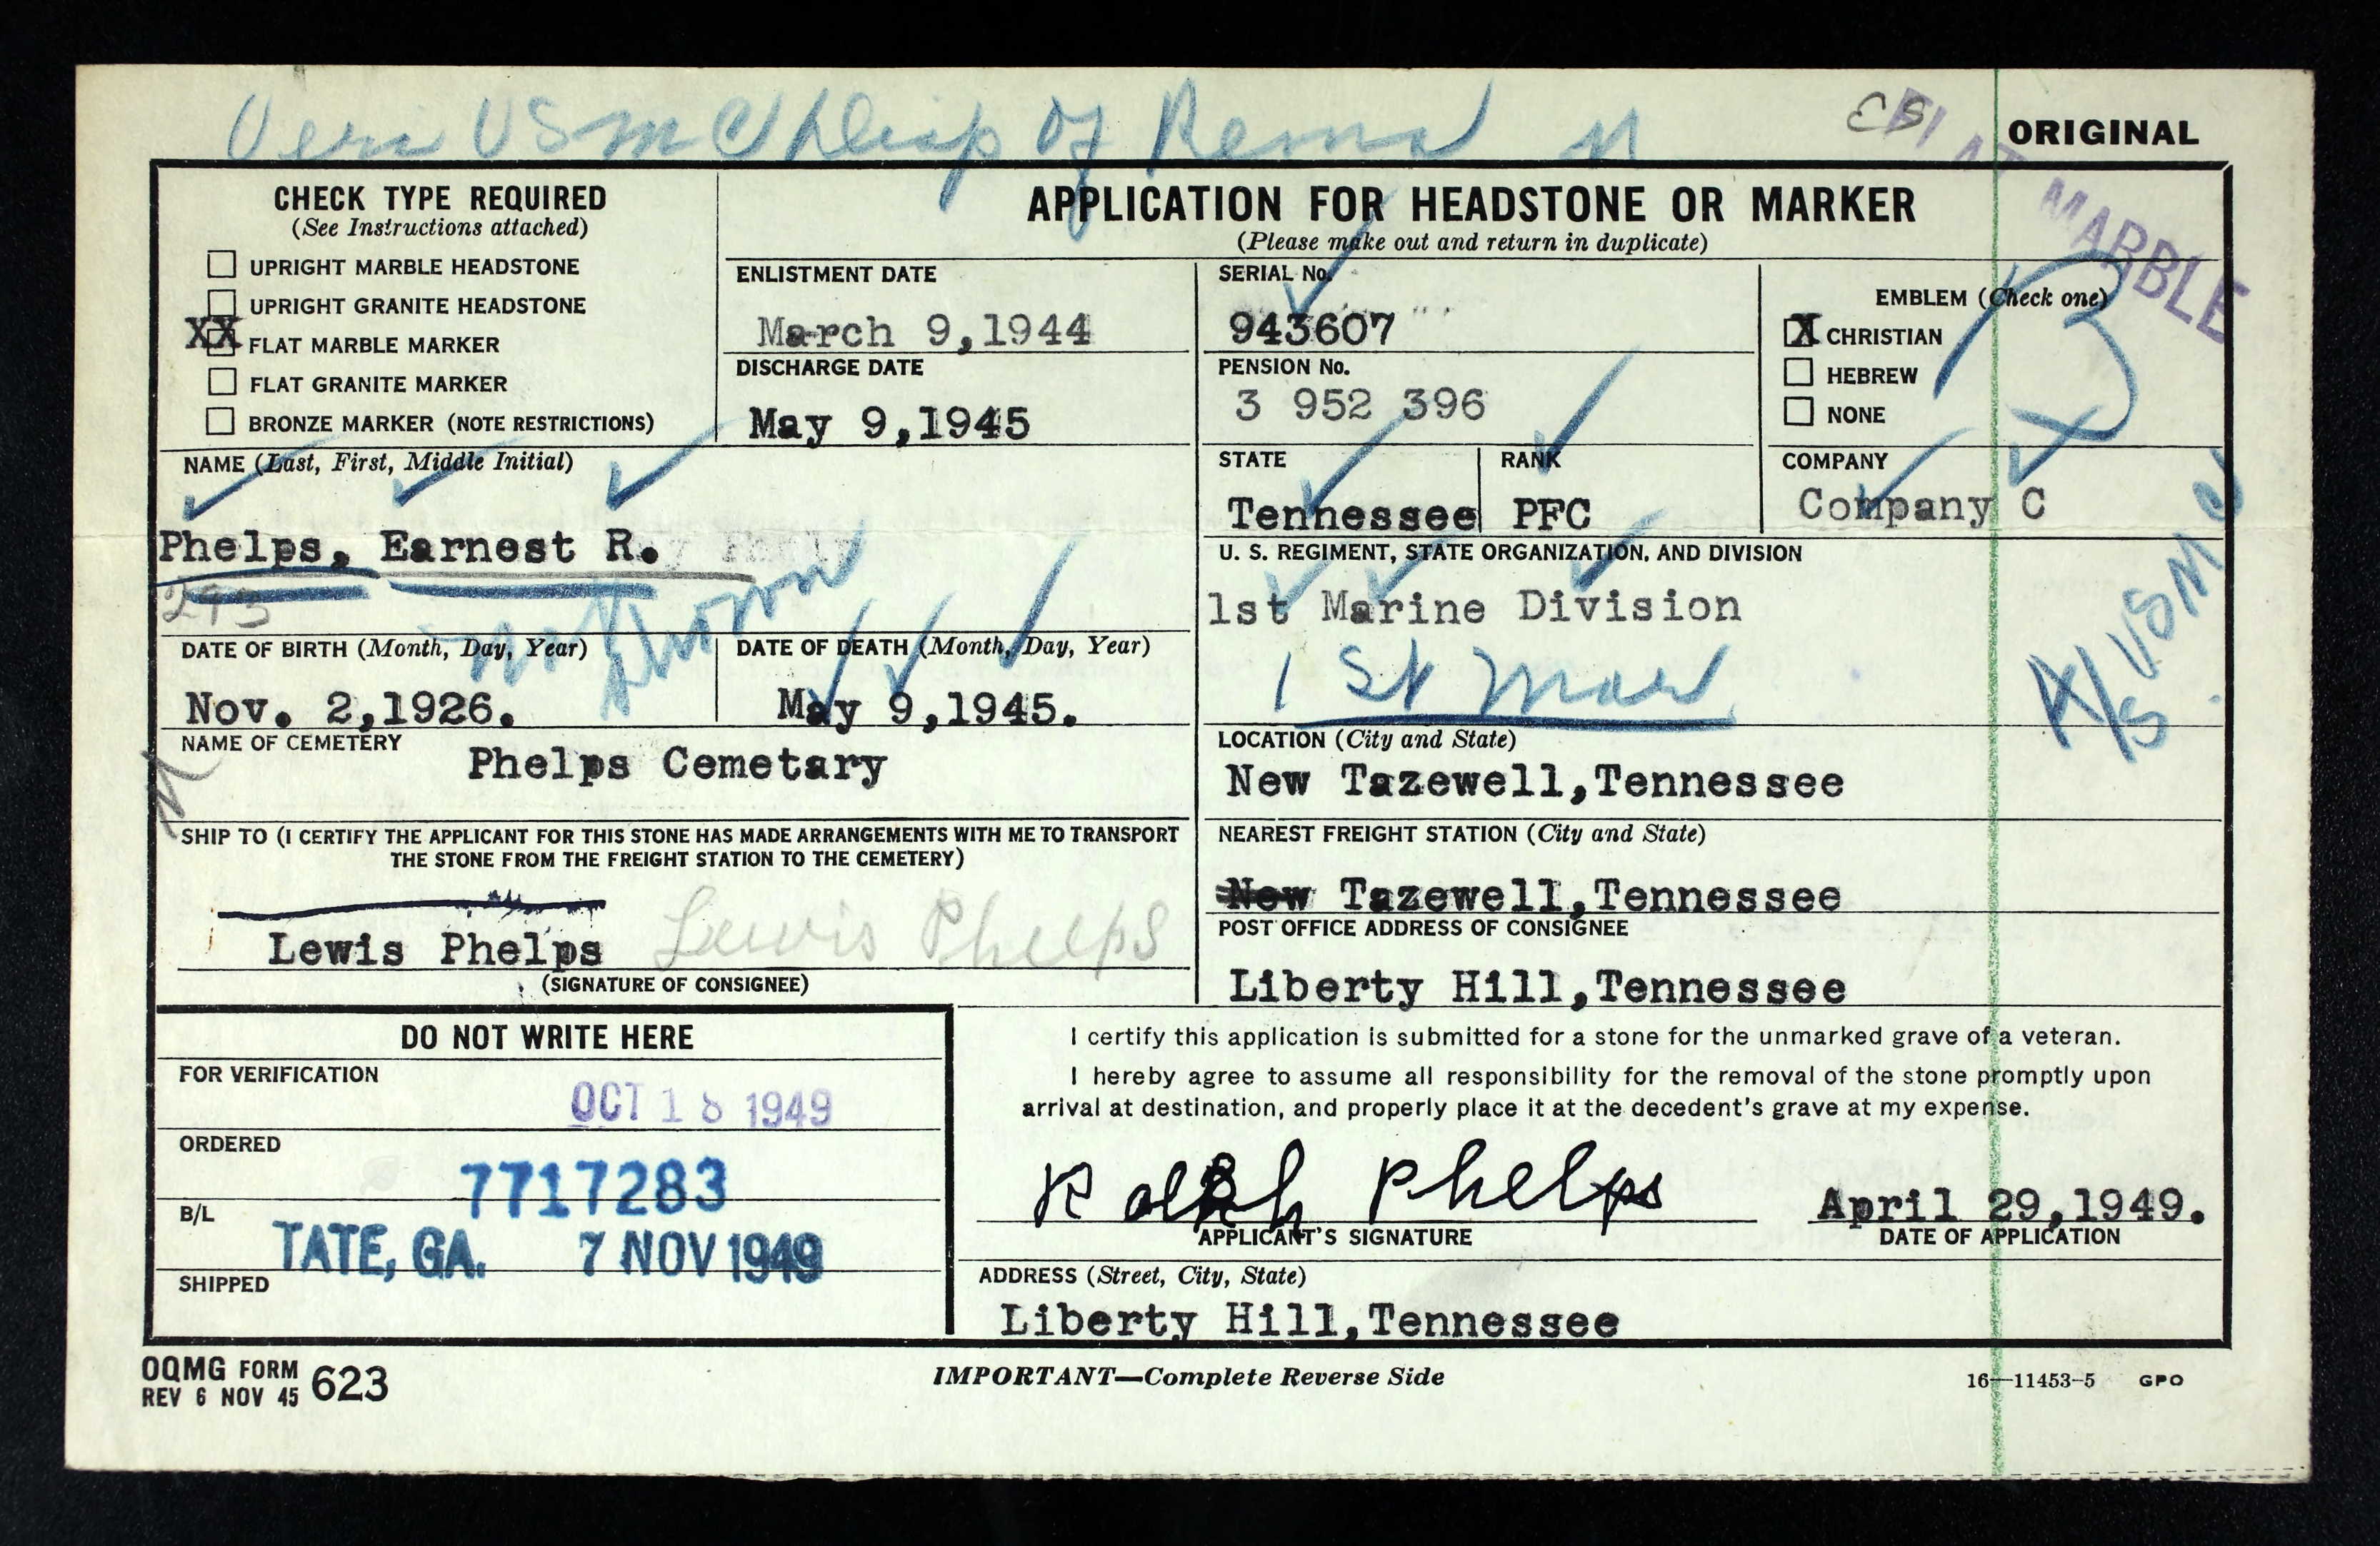 ORIGINAL
FLAT MARBLE
CHECK TYPE REQUIRED
(See Instructions attached)
UPRIGHT MARBLE HEADSTONE
UPRIGHT GRANITE HEADSTONE
XX FLAT MARBLE MARKER
FLAT GRANITE MARKER
BRONZE MARKER (NOTE RESTRICTIONS)
APPLICATION FOR HEADSTONE OR MARKER
(Please make out and return in duplicate)
ENLISTMENT DATE
March 9,1944
DISCHARGE DATE
May 9,1945
SERIAL No.
943607
PENSION No.
3 952 396
EMBLEM (Check one)
X CHRISTIAN
HEBREW
NONE
NAME (Last, First, Middle Initial)
Phelps, Earnest R.
293
STATE
Tennessee
RANK
PFC
COMPANY
Company C
U. S. REGIMENT, STATE ORGANIZATION, AND DIVISION
1st Marine Division
1 St Mar
USMC
DATE OF BIRTH (Month, Day, Year)
Nov. 2,1926.
DATE OF DEATH (Month, Day, Year)
May 9,1945.
NAME OF CEMETERY
Phelps Cemetary
LOCATION (City and State)
New Tazewell,Tennessee
SHIP TO (I CERTIFY THE APPLICANT FOR THIS STONE HAS MADE ARRANGEMENTS WITH ME TO TRANSPORT
THE STONE FROM THE FREIGHT STATION TO THE CEMETERY)
Lewis Phelps Lewis Phelps
(SIGNATURE OF CONSIGNEE)
NEAREST FREIGHT STATION (City and State)
New Tazewell,Tennessee
POST OFFICE ADDRESS OF CONSIGNEE
Liberty Hill,Tennessee
DO NOT WRITE HERE
FOR VERIFICATION
OCT 18 1949
ORDERED
7717283
B/L
TATE, GA. 7 NOV 1949
SHIPPED
I certify this application is submitted for a stone for the unmarked grave of a veteran.
I hereby agree to assume all responsibility for the removal of the stone promptly upon
arrival at destination, and properly place it at the decedent's grave at my expense.
Ralph Phelps
APPLICANT'S SIGNATURE
April 29,1949.
DATE OF APPLICATION
ADDRESS (Street, City, State)
Liberty Hill,Tennessee
OQMG FORM 623
REV 6 NOV 45
IMPORTANT—Complete Reverse Side
16—11453-5 GPO